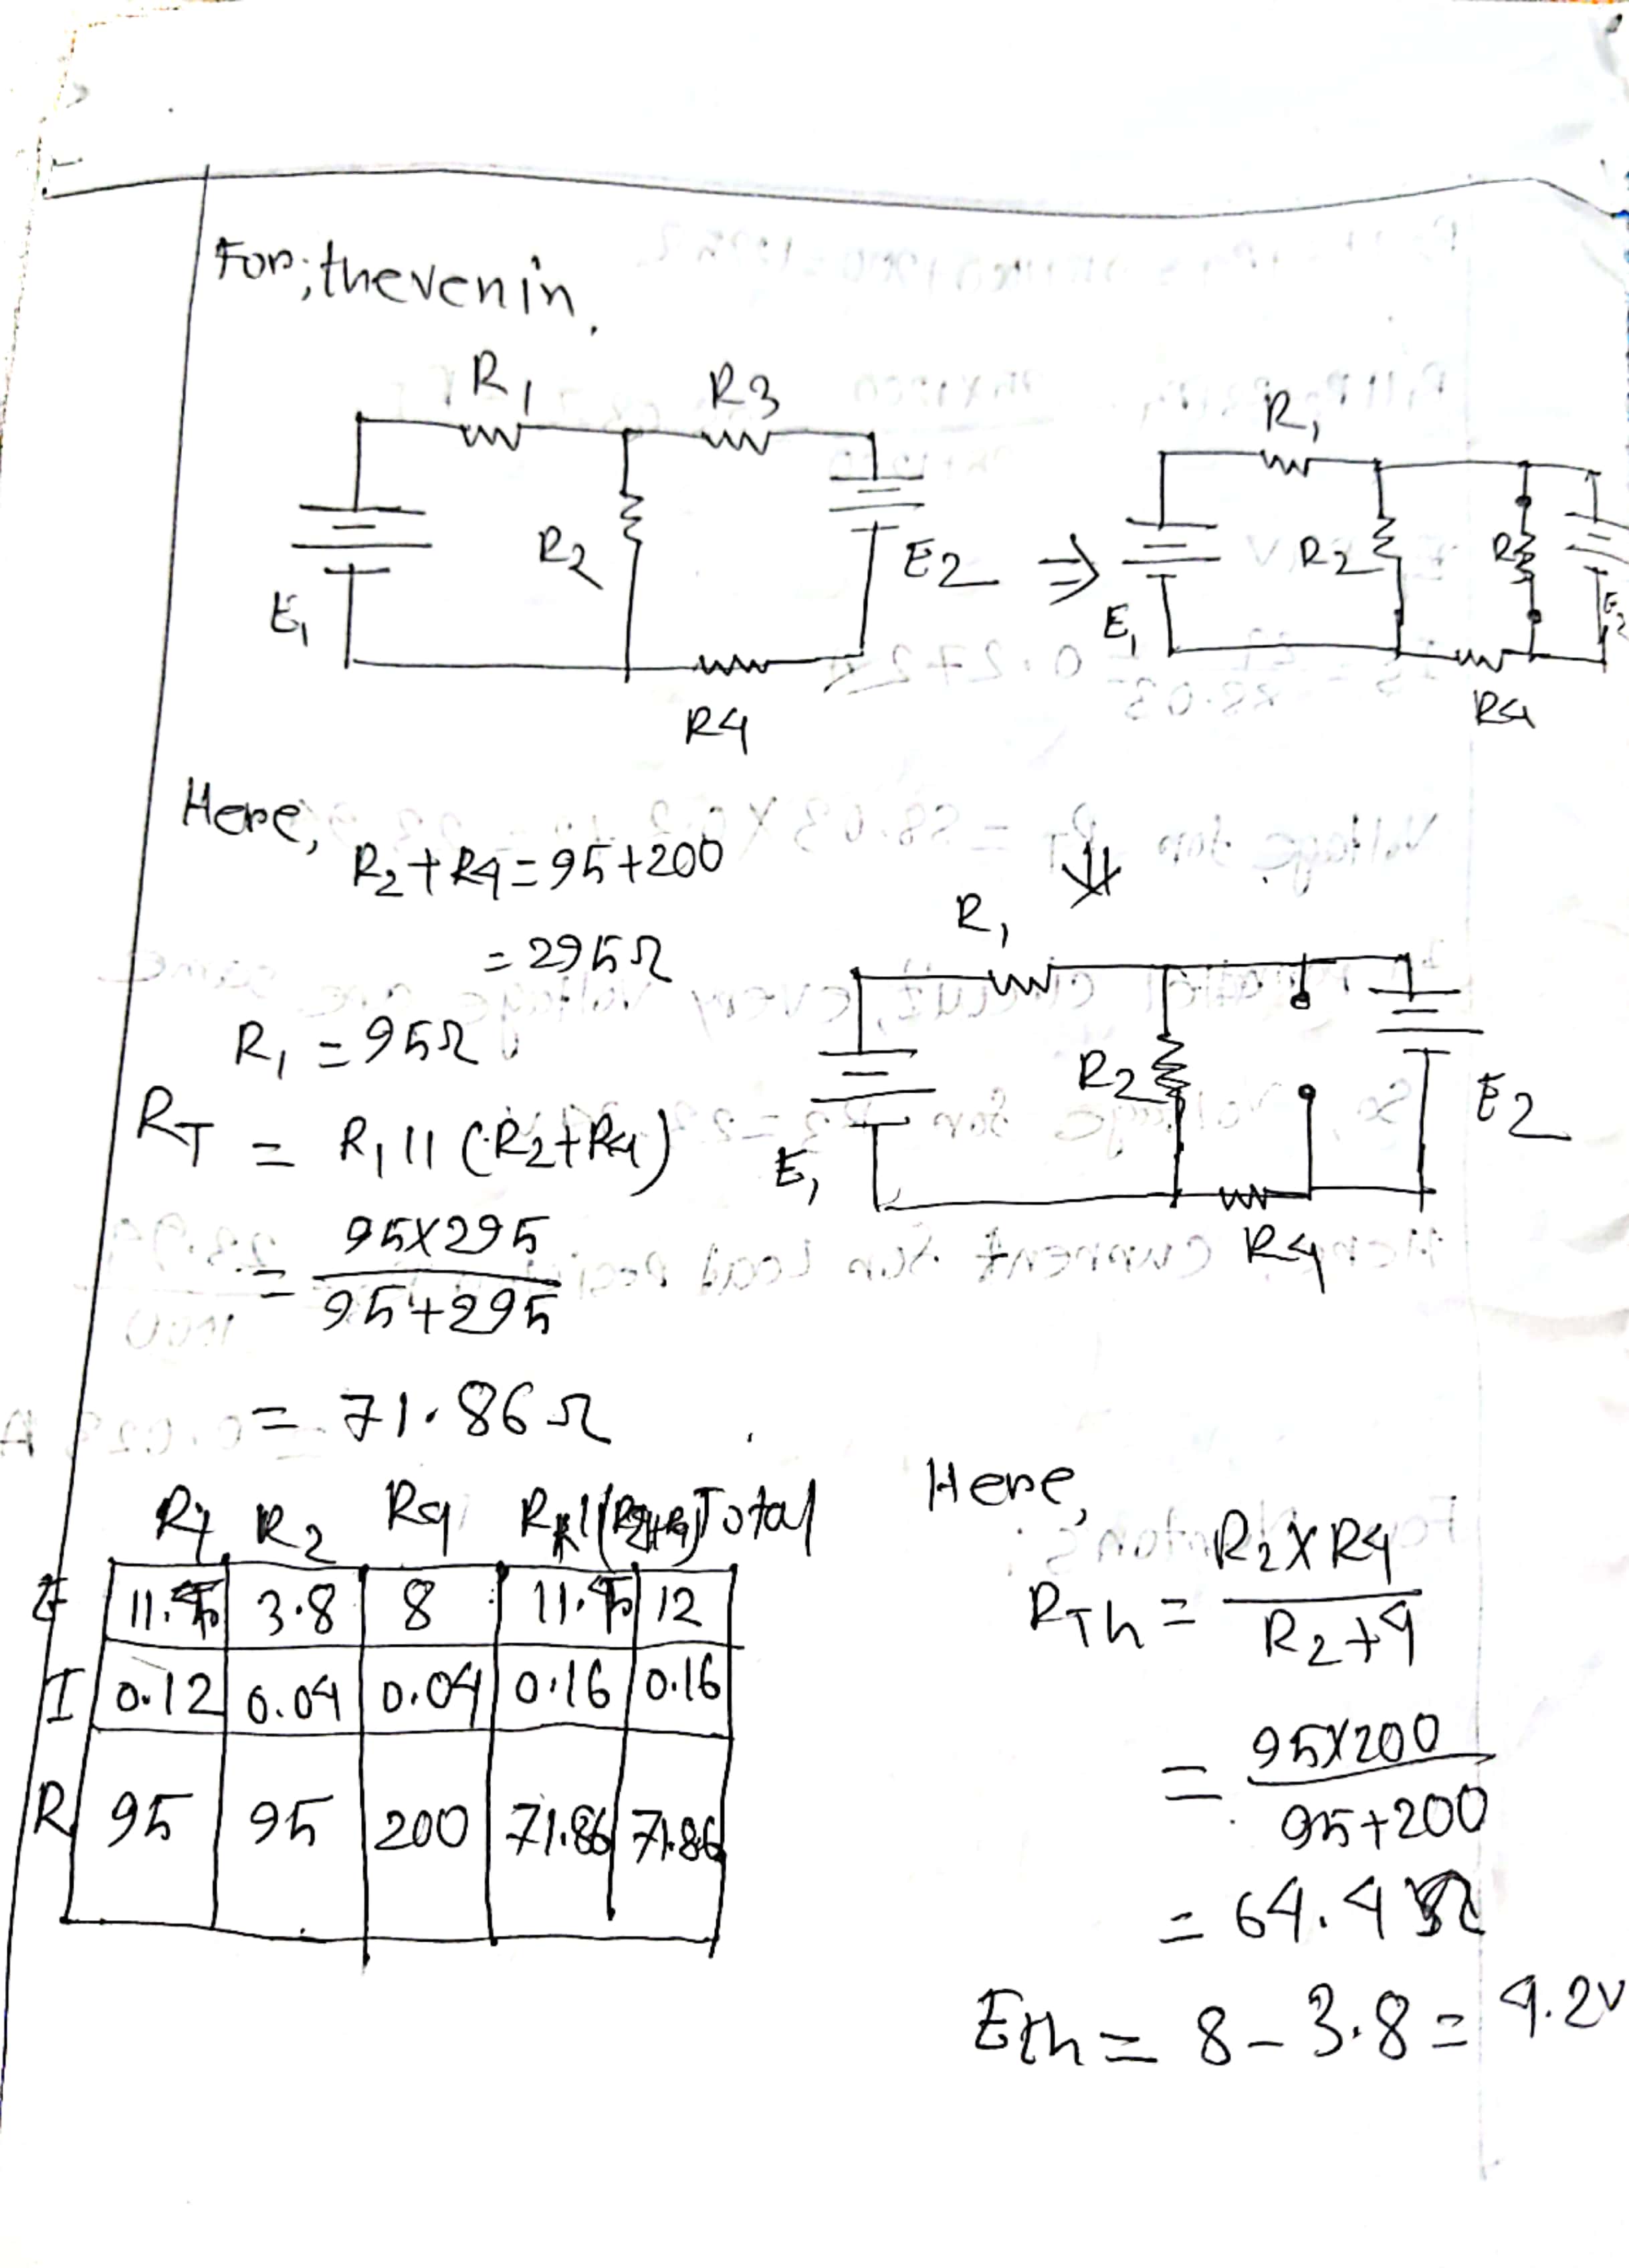 For; thevenin.
R1 R3 R1
R2 E2 ⇒ R2 R3 E2
E1 E1
R4 R4
Here,
R2+R4=95+200
=295Ω
R1=95Ω
RT = R1 || (R2+R4)
= 95X295 / 95+295
= 71.86Ω
⇓
R1
R2 E2
E1
R4
R1 R2 R4 Total
E 3.8 8 12
I 0.12 0.04 0.04 0.16 0.16
R 95 95 200 71.86 71.86
Here,
RTh = R2XR4 / R2+4
= 95X200 / 95+200
= 64.4Ω
Eth = 8-3.8= 4.2V